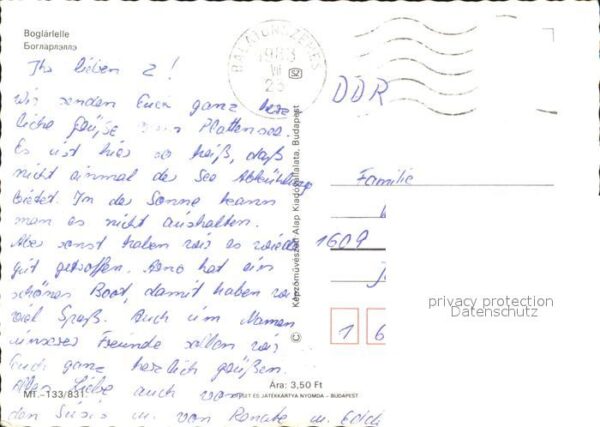 Boglárlelle
Богларлэллэ
Ihr lieben 2!
Wir senden Euch ganz herz
liche Grüße vom Plattensee.
Es ist hier so heiß, daß
nicht einmal der See Abkühlung
bietet. In der Sonne kann
man es nicht aushalten.
Aber sonst haben wir es wieder
gut getroffen. Arno hat ein
schönes Boot, damit haben wir
viel Spaß. Auch im Namen
unserer Freunde sollen wir
Euch ganz herzlich grüßen.
Alles Liebe auch von
den Süßis u. von Renate u.
MT.-133/831
BALATONSZEMES
1983
VII
25
DDR
Képzőművészeti Alap Kiadóvállalata, Budapest
©
Familie
1609
1 6
privacy protection
Datenschutz
Ára: 3,50 Ft
ÉS JÁTÉKKÁRTYA NYOMDA - BUDAPEST